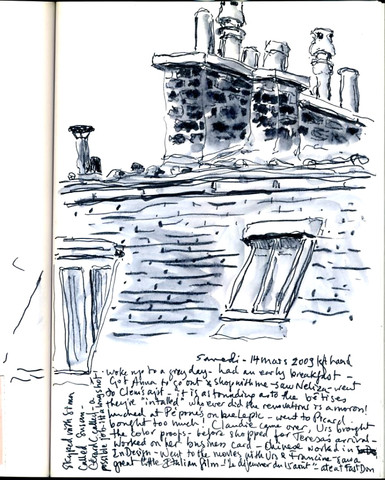 Samedi - 14 mars 2009 left hand
woke up to a grey day - had an early breakfast -
Got Anna to go out & shop with me - saw Neliza - went
to Clem's apt - it is astounding as to the bêtises
they've "installed" whoever did the renovations is a moron!
lunched at Pépone's on Lepic - went to Picard -
bought too much! Claudie came over, Urs brought
the color proofs - before shopped for Teresa's arrival -
worked on her business card - Chinese worked in
InDesign - went to the movies with Urs & Francine - saw a
great little Italian film! "Il déjeuner du 15 août" - ate at Fast Don
Skyped with Stan
called Susan -
possible job - it's a long shot